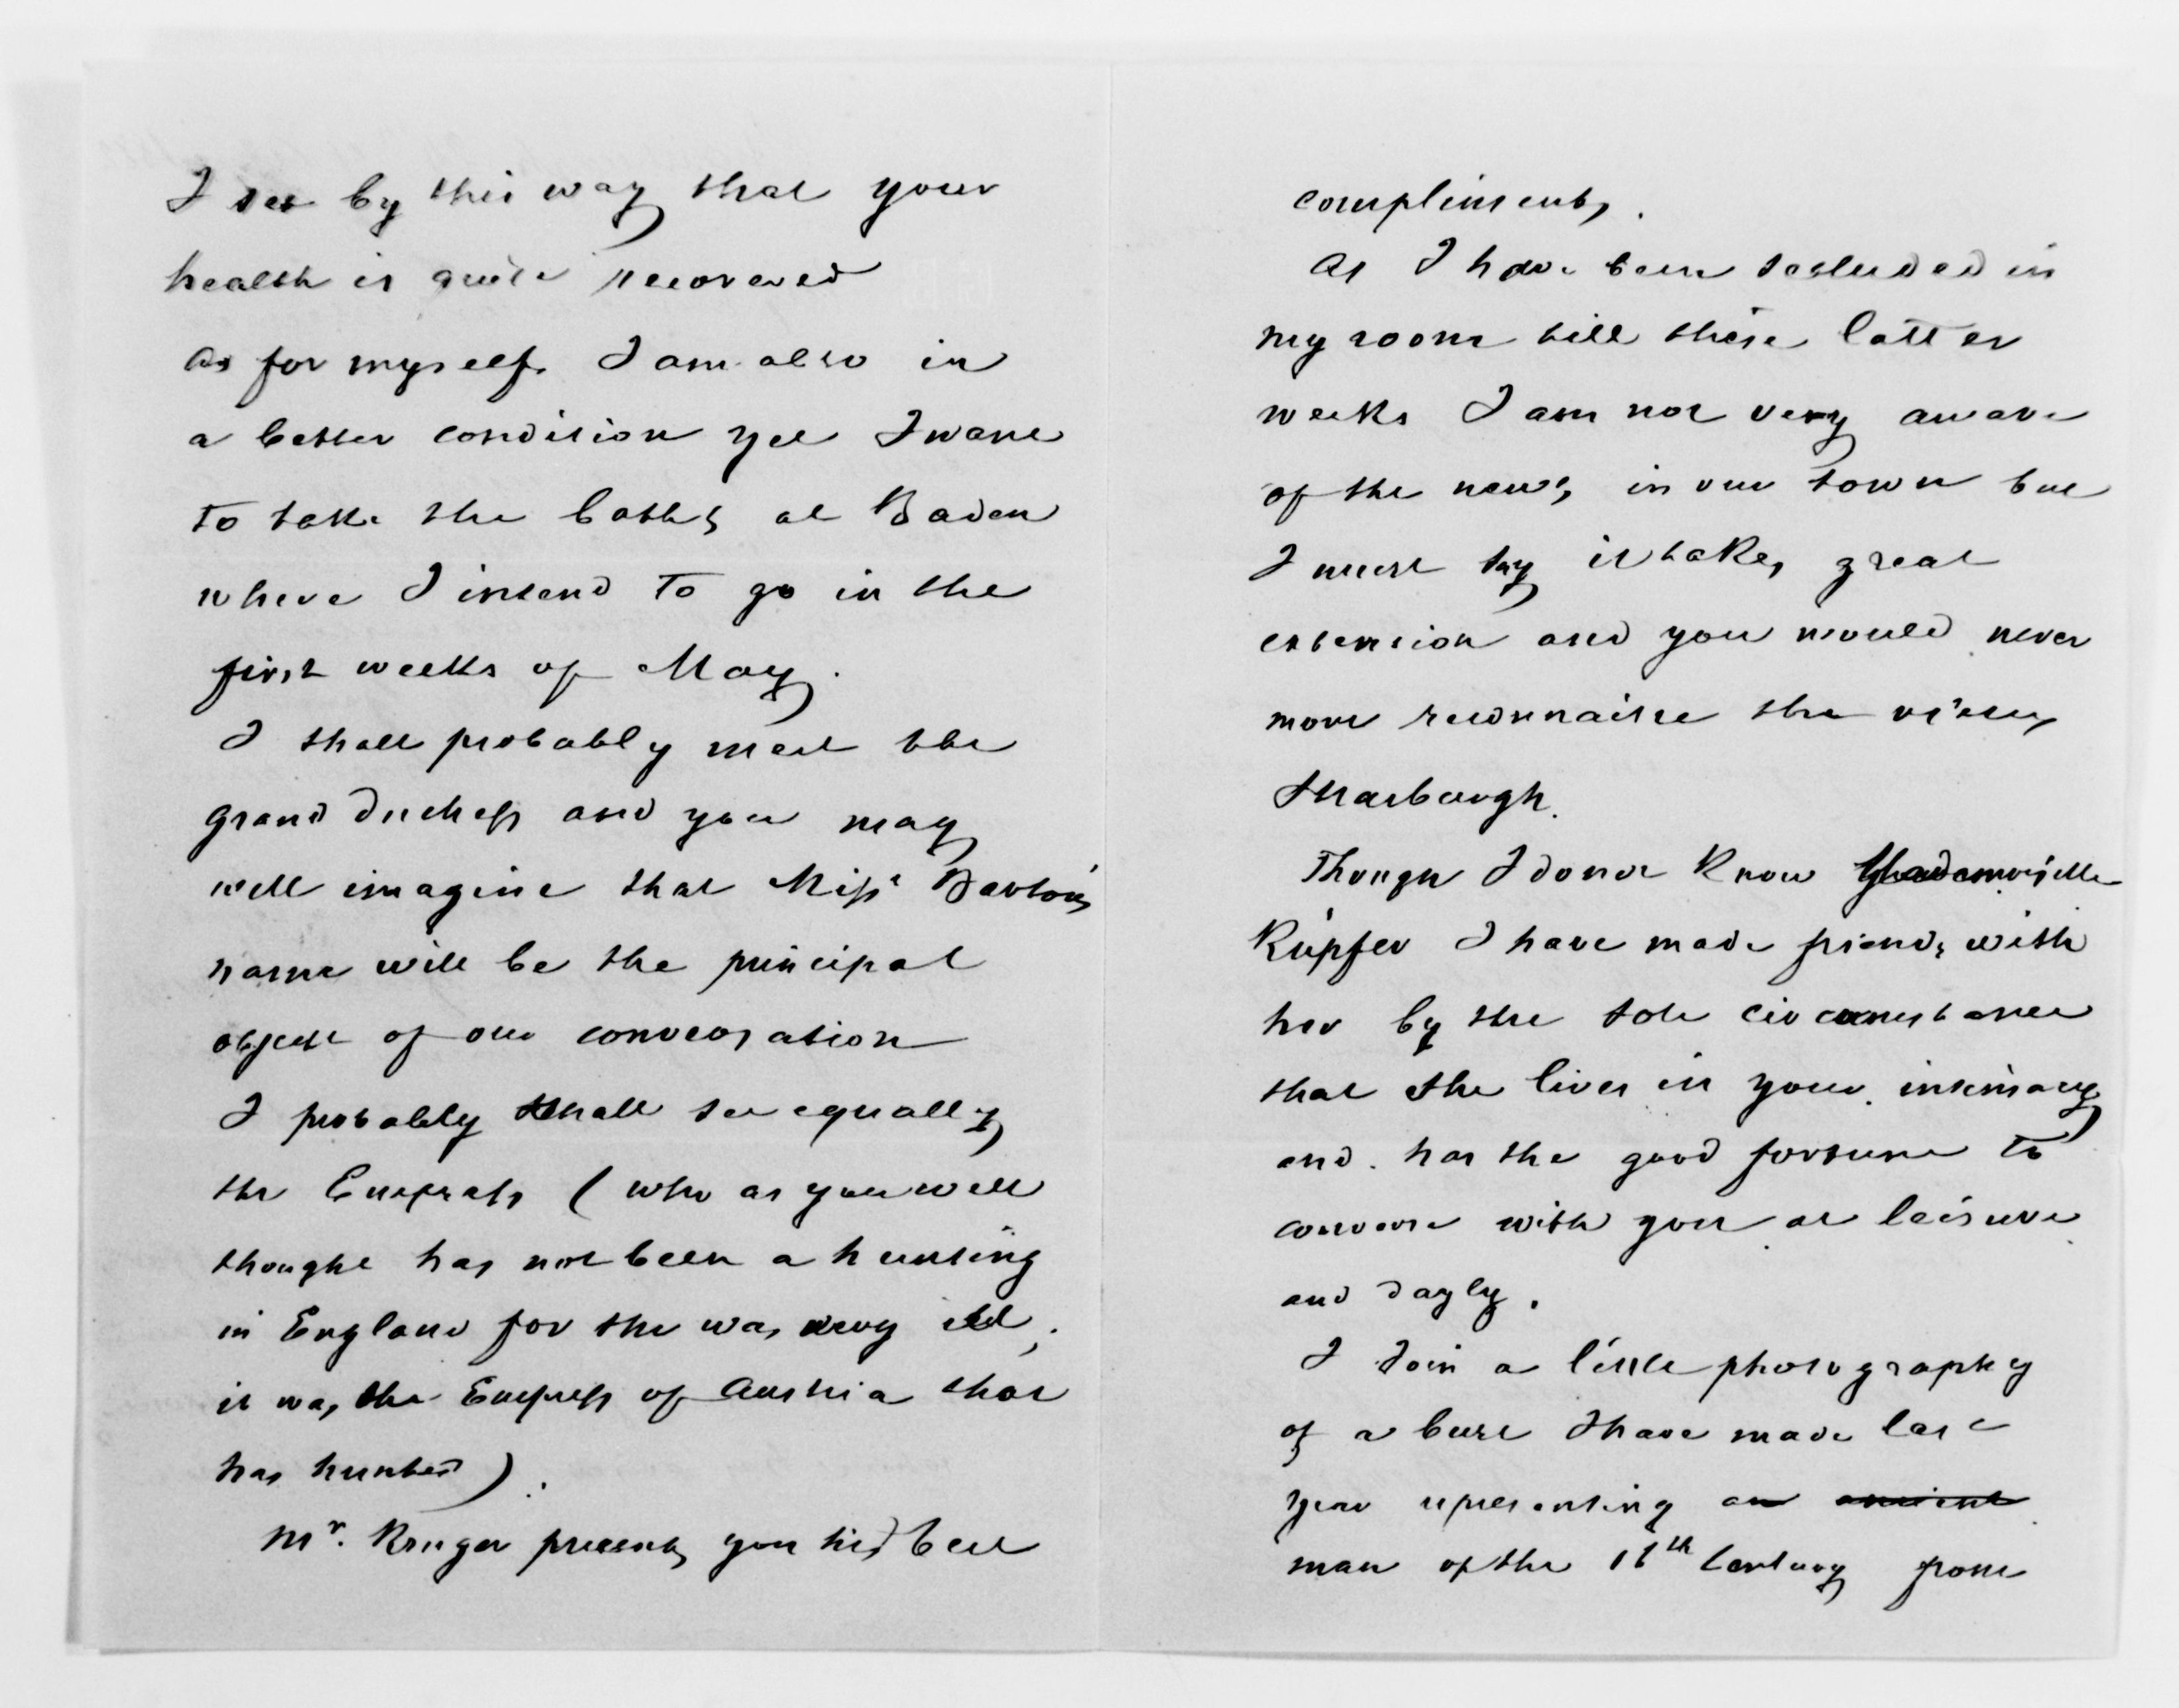 I see by this way that your
health is quite recovered
as for myself. I am also in
a better condition yet I want
to take the baths at Baden
where I intend to go in the
first weeks of May.
I shall probably meet the
grand duchess and you may
well imagine that Miss Barton's
name will be the principal
object of our conversation
I probably shall see equally
the Empress (who as you well
thought has not been a hunting
in England for she was very ill,
it was the Empress of Austria that
has hunted).
Mr. Kruger presents you his best
compliments.
As I have been secluded in
my room till these latter
weeks I am not very aware
of the news in our town but
I must say it takes great
extension and you would never
more reconnaitre the
Strasbourgh.
Though I do not know Mademoiselle
Kupfer I have made friends with
her by the sole circumstance
that she lives in your intimacy
and has the good fortune to
converse with you at leisure
and dayly.
I Join a little photography
of a bust I have made last
year representing an ancient
man of the 16th Century from